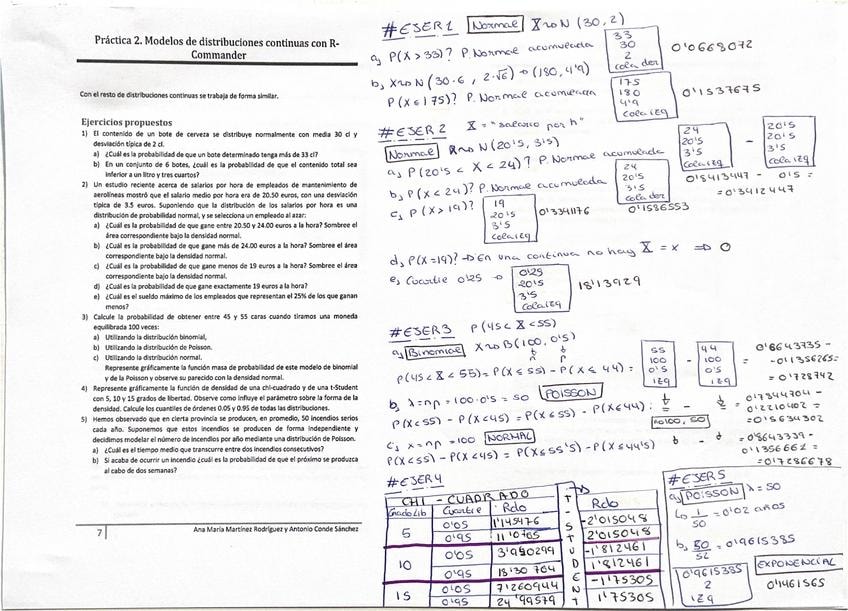 Práctica 2. Modelos de distribuciones continuas con R-
Commander
Con el resto de distribuciones continuas se trabaja de forma similar.
Ejercicios propuestos
1) El contenido de un bote de cerveza se distribuye normalmente con media 30 cl y
desviación típica de 2 cl.
a) ¿Cuál es la probabilidad de que un bote determinado tenga más de 33 cl?
b) En un conjunto de 6 botes, ¿cuál es la probabilidad de que el contenido total sea
inferior a un litro y tres cuartos?
2) Un estudio reciente acerca de salarios por hora de empleados de mantenimiento de
aerolíneas mostró que el salario medio por hora era de 20.50 euros, con una desviación
típica de 3.5 euros. Suponiendo que la distribución de los salarios por hora es una
distribución de probabilidad normal, y se selecciona un empleado al azar:
a) ¿Cuál es la probabilidad de que gane entre 20.50 y 24.00 euros a la hora? Sombree el
área correspondiente bajo la densidad normal.
b) ¿Cuál es la probabilidad de que gane más de 24.00 euros a la hora? Sombree el área
correspondiente bajo la densidad normal.
c) ¿Cuál es la probabilidad de que gane menos de 19 euros a la hora? Sombree el área
correspondiente bajo la densidad normal.
d) ¿Cuál es la probabilidad de que gane exactamente 19 euros a la hora?
e) ¿Cuál es el sueldo máximo de los empleados que representan el 25% de los que ganan
menos?
3) Calcule la probabilidad de obtener entre 45 y 55 caras cuando tiramos una moneda
equilibrada 100 veces:
a) Utilizando la distribución binomial,
b) Utilizando la distribución de Poisson.
c) Utilizando la distribución normal.
Represente gráficamente la función masa de probabilidad de este modelo de binomial
y de la Poisson y observe su parecido con la densidad normal.
4) Represente gráficamente la función de densidad de una chi-cuadrado y de una t-Student
con 5, 10 y 15 grados de libertad. Observe como influye el parámetro sobre la forma de la
densidad. Calcule los cuantiles de órdenes 0.05 y 0.95 de todas las distribuciones.
5) Hemos observado que en cierta provincia se producen, en promedio, 50 incendios serios
cada año. Suponemos que estos incendios se producen de forma independiente y
decidimos modelar el número de incendios por año mediante una distribución de Poisson.
a) ¿Cuál es el tiempo medio que transcurre entre dos incendios consecutivos?
b) Si acaba de ocurrir un incendio ¿cuál es la probabilidad de que el próximo se produzca
al cabo de dos semanas?
7 Ana María Martínez Rodríguez y Antonio Conde Sánchez
#EJER1 Normal X~N (30,2)
a) P(X>33)? P. Normal acumulada 33 30 2 cola der 0'0668072
b) X~N (30·6, 2·√6) → (180, 4'9)
P(X≤175)? P. Normal acumulada 175 180 4'9 cola izq 0'1537675
#EJER2 X = "salario por h"
Normal X~N (20'5, 3'5)
a) P(20'5 < X < 24)? P. Normal acumulada 24 20'5 3'5 cola izq - 20'5 20'5 3'5 cola izq
0'8413447 - 0'5 =
= 0'3412447
b) P(X<24)? P. Normal acumulada 24 20'5 3'5 cola der 0'1586553
c) P(X>19)? 19 20'5 3'5 cola izq 0'3341176
d) P(X=19)? → En una continua no hay X = x ⇒ 0
e) Cuartie 0'25 → 0'25 20'5 3'5 cola izq 18'13929
#EJER3 P(45<X<55)
a) Binomial X~B(100, 0'5)
n p
P(45<X<55) = P(X≤55) - P(X≤44) = 55 100 0'5 izq - 44 100 0'5 izq = 0'8643735 -
- 0'1356265 =
= 0'728742
b) λ = np = 100·0'5 = 50 POISSON
P(X≤55) - P(X<45) = P(X≤55) - P(X≤44) : = 0'7844704 -
0'2210402 =
= 0'5634302
c) x = np = 100 NORMAL
P(X≤55) - P(X<45) = P(X≤55'5) - P(X≤44'5) = 0'8643339 -
0'1356662 =
= 0'7286678
#EJER4
CHI - CUADRADO T-STUDENT
Grado lib Cuartie Rdo Rdo
5 0'05 1'145476 -2'015048
0'95 11'0705 2'015048
10 0'05 3'940299 -1'812461
0'95 18'30704 1'812461
15 0'05 7'260944 -1'75305
0'95 24'99579 1'75305
#EJER5
a) POISSON λ = 50
↳ 1/50 = 0'02 años
b) 50/52 = 0'9615385
0'9615385 2 izq EXPONENCIAL
0'1461565